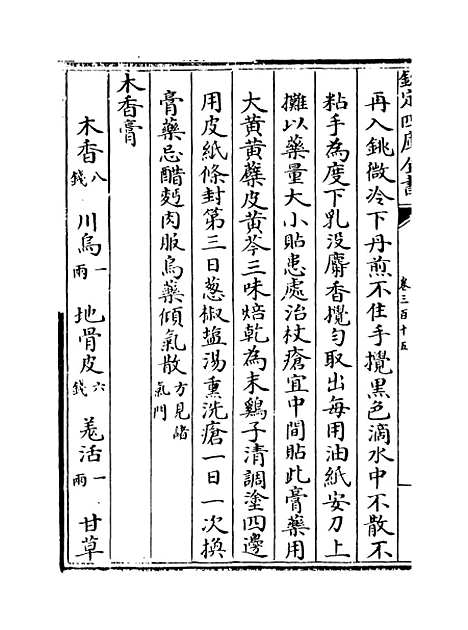 欽定四庫全書
卷三百十五
再入銚微冷下丹煎不住手攪黒色滴水中不散不
粘手為度下乳没麝香攪匀取出毎用油紙安刀上
攤以藥量大小貼患處治杖瘡宜中間貼此膏藥用
大黄黄蘗皮黄芩三味焙乾為末鷄子清調塗四邊
用皮紙條封第三日葱椒塩湯熏洗瘡一日一次換
膏藥忌醋麪肉服烏藥傾氣散方見諸氣門
木香膏
木香八錢 川烏一兩 地骨皮六錢 羗活一兩 甘草